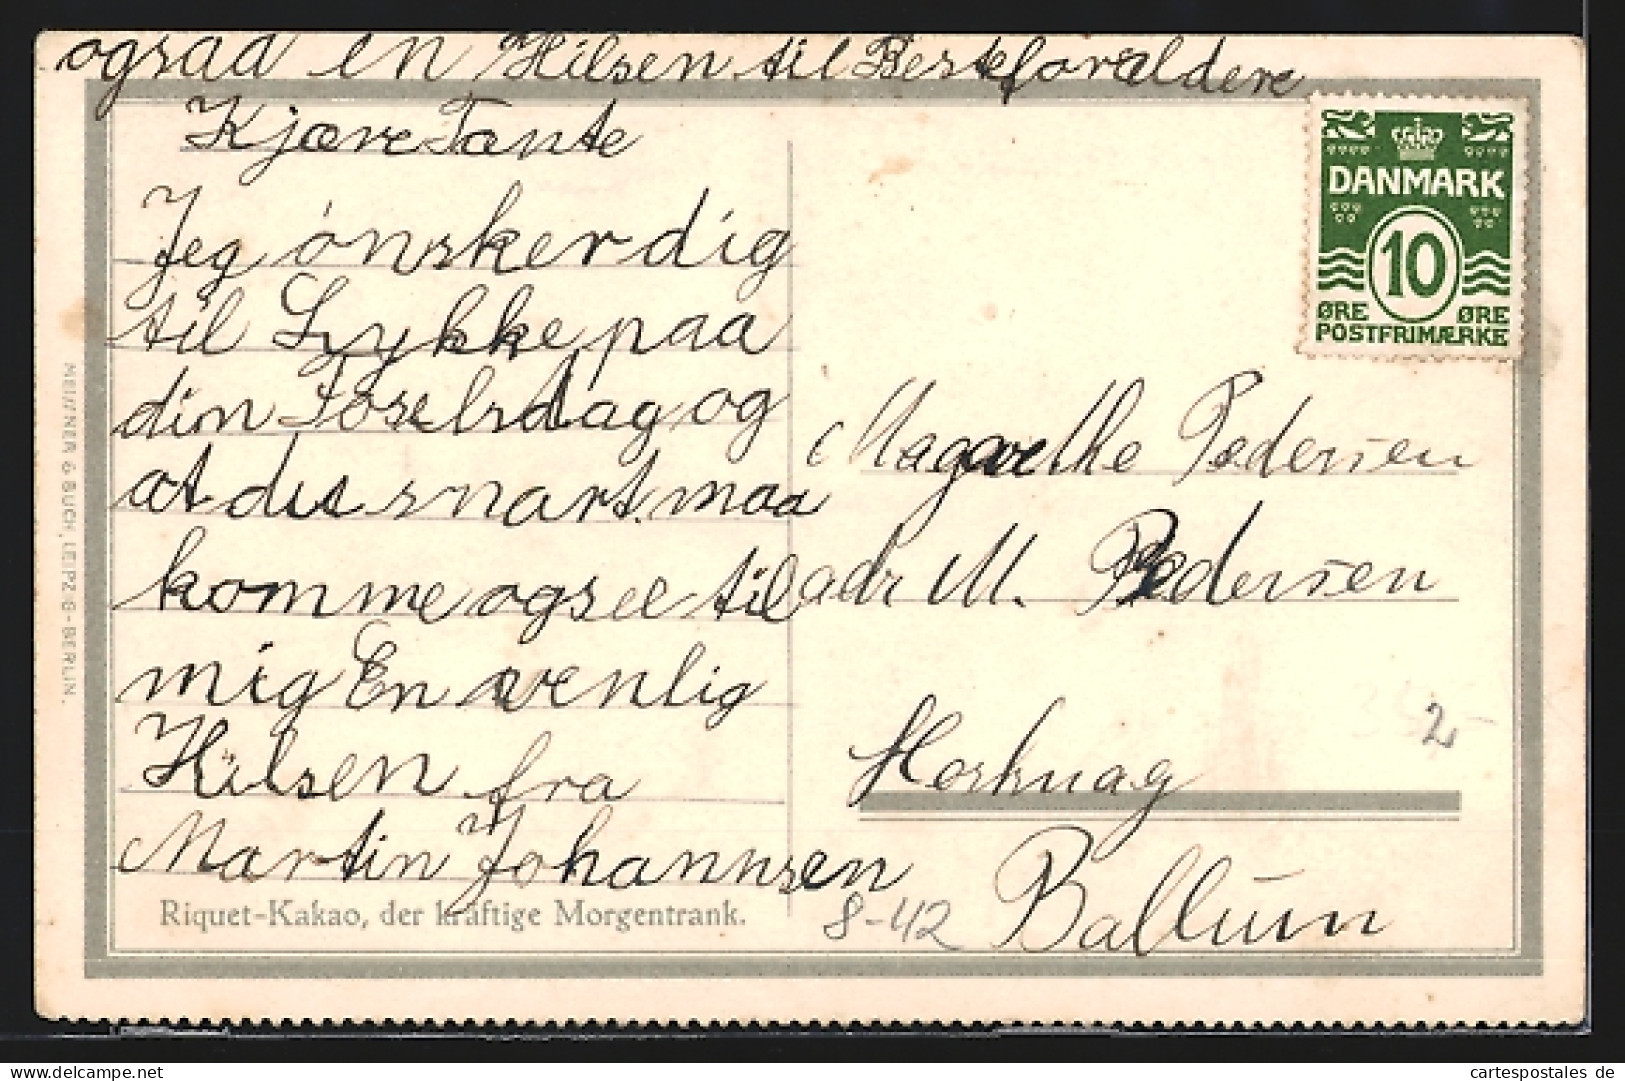 ogsaa en Hilsen til Besteforældere
Kjære Tante
Jeg ønsker dig
til Lykke paa
din Føselsdag og
at du snart maa
komme ogsee til
mig En venlig
Hilsen fra
Martin Johannsen
Riquet-Kakao, der kräftige Morgentrank.
MEISSNER & BUCH, LEIPZIG-BERLIN.
DANMARK
10
ØRE ØRE
POSTFRIMÆRKE
Magrethe Pedersen
adr M. Pedersen
Ballum
8-42
2-
cartespostales de